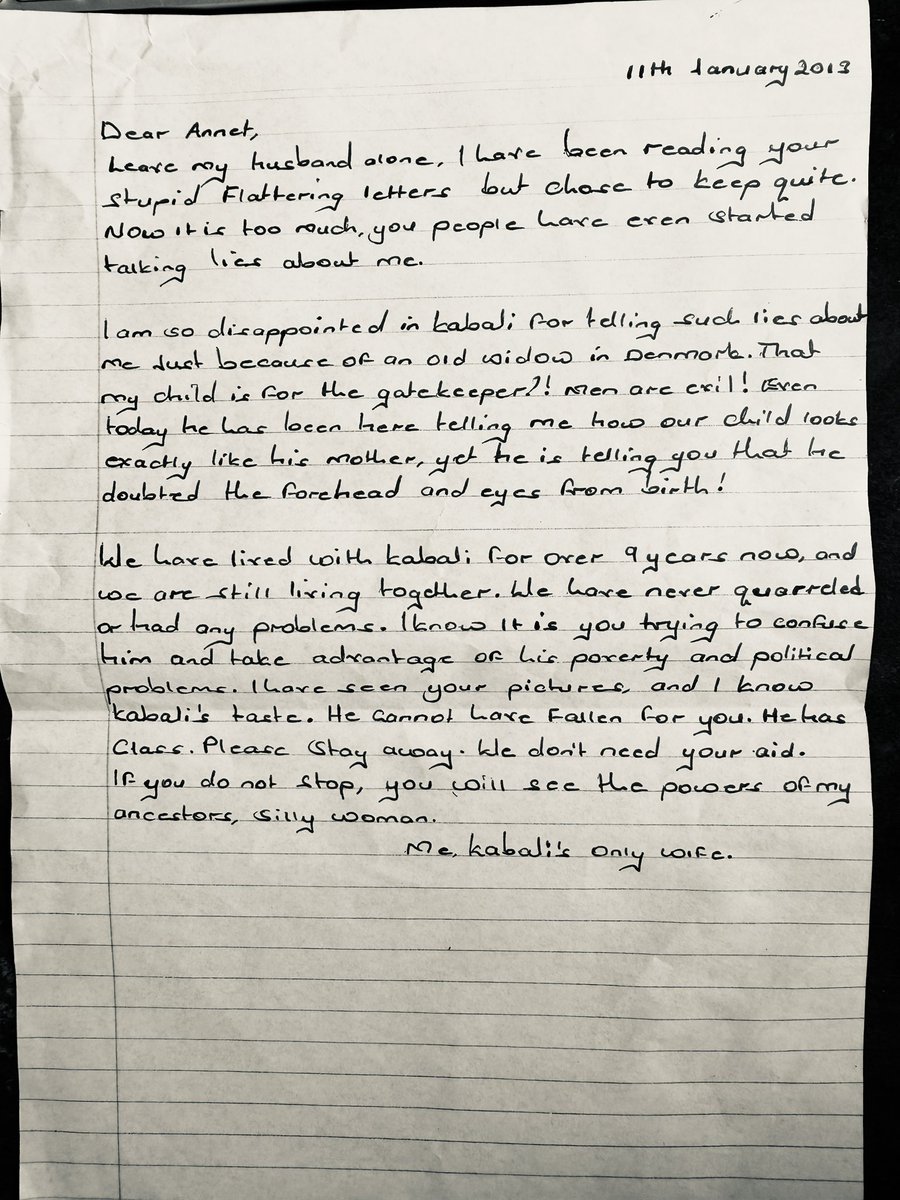 11th January 2013
Dear Annet,
Leave my husband alone, I have been reading your
stupid Flattering letters but chose to keep quite.
Now it is too much, you people have even started
talking lies about me.
I am so disappointed in kabali for telling such lies about
me Just because of an old widow in Denmark. That
my child is for the gatekeeper?! Men are evil! Even
today he has been here telling me how our child looks
exactly like his mother, yet he is telling you that he
doubted the forehead and eyes from birth!
We have lived with kabali for over 9 years now, and
we are still living together. We have never quarreled
or had any problems. I know it is you trying to confuse
him and take advantage of his poverty and political
problems. I have seen your pictures, and I know
kabali's taste. He cannot have Fallen for you. He has
Class. Please stay away. We don't need your aid.
If you do not stop, you will see the powers of my
ancestors, silly woman.
Me, kabali's only wife.